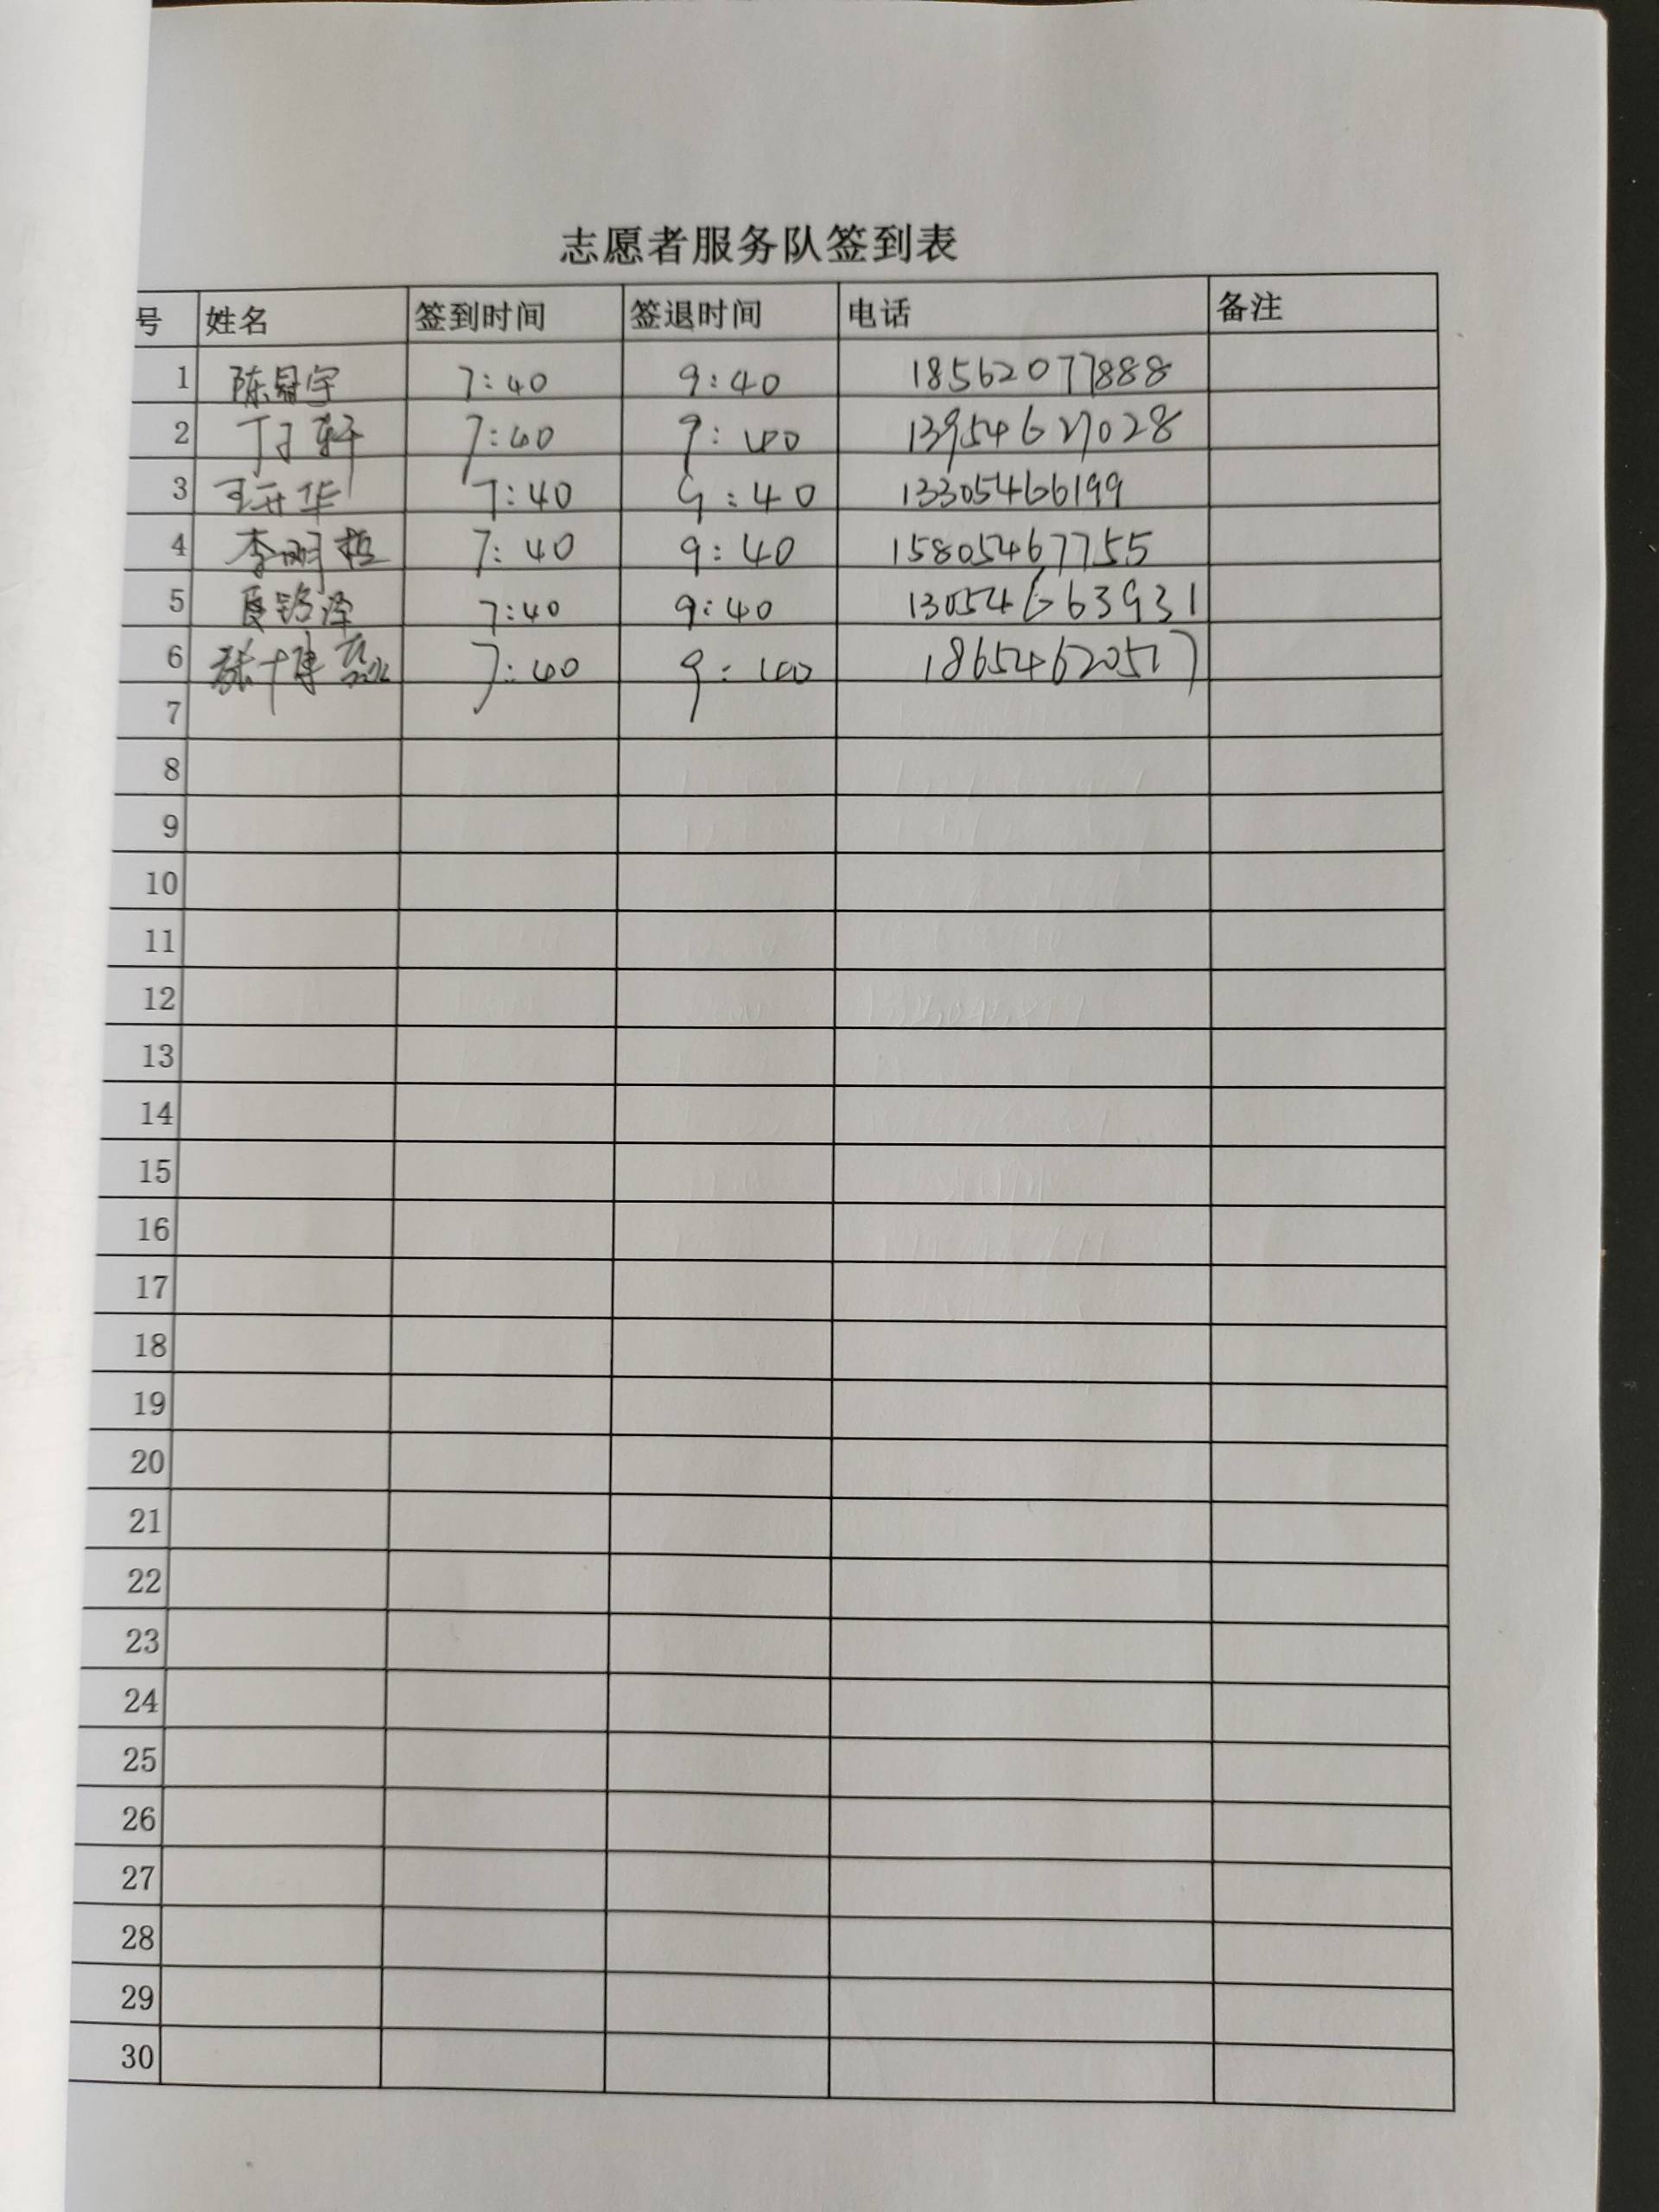 志愿者服务队签到表
号 姓名 签到时间 签退时间 电话 备注
1 陈冠宇 7:40 9:40 18562077888
2 丁子轩 7:40 9:40 13954627028
3 王开华 7:40 9:40 13305466199
4 李明哲 7:40 9:40 15805467755
5 夏铭泽 7:40 9:40 13054663931
6 张博 7:40 9:40 18654620517
7
8
9
10
11
12
13
14
15
16
17
18
19
20
21
22
23
24
25
26
27
28
29
30